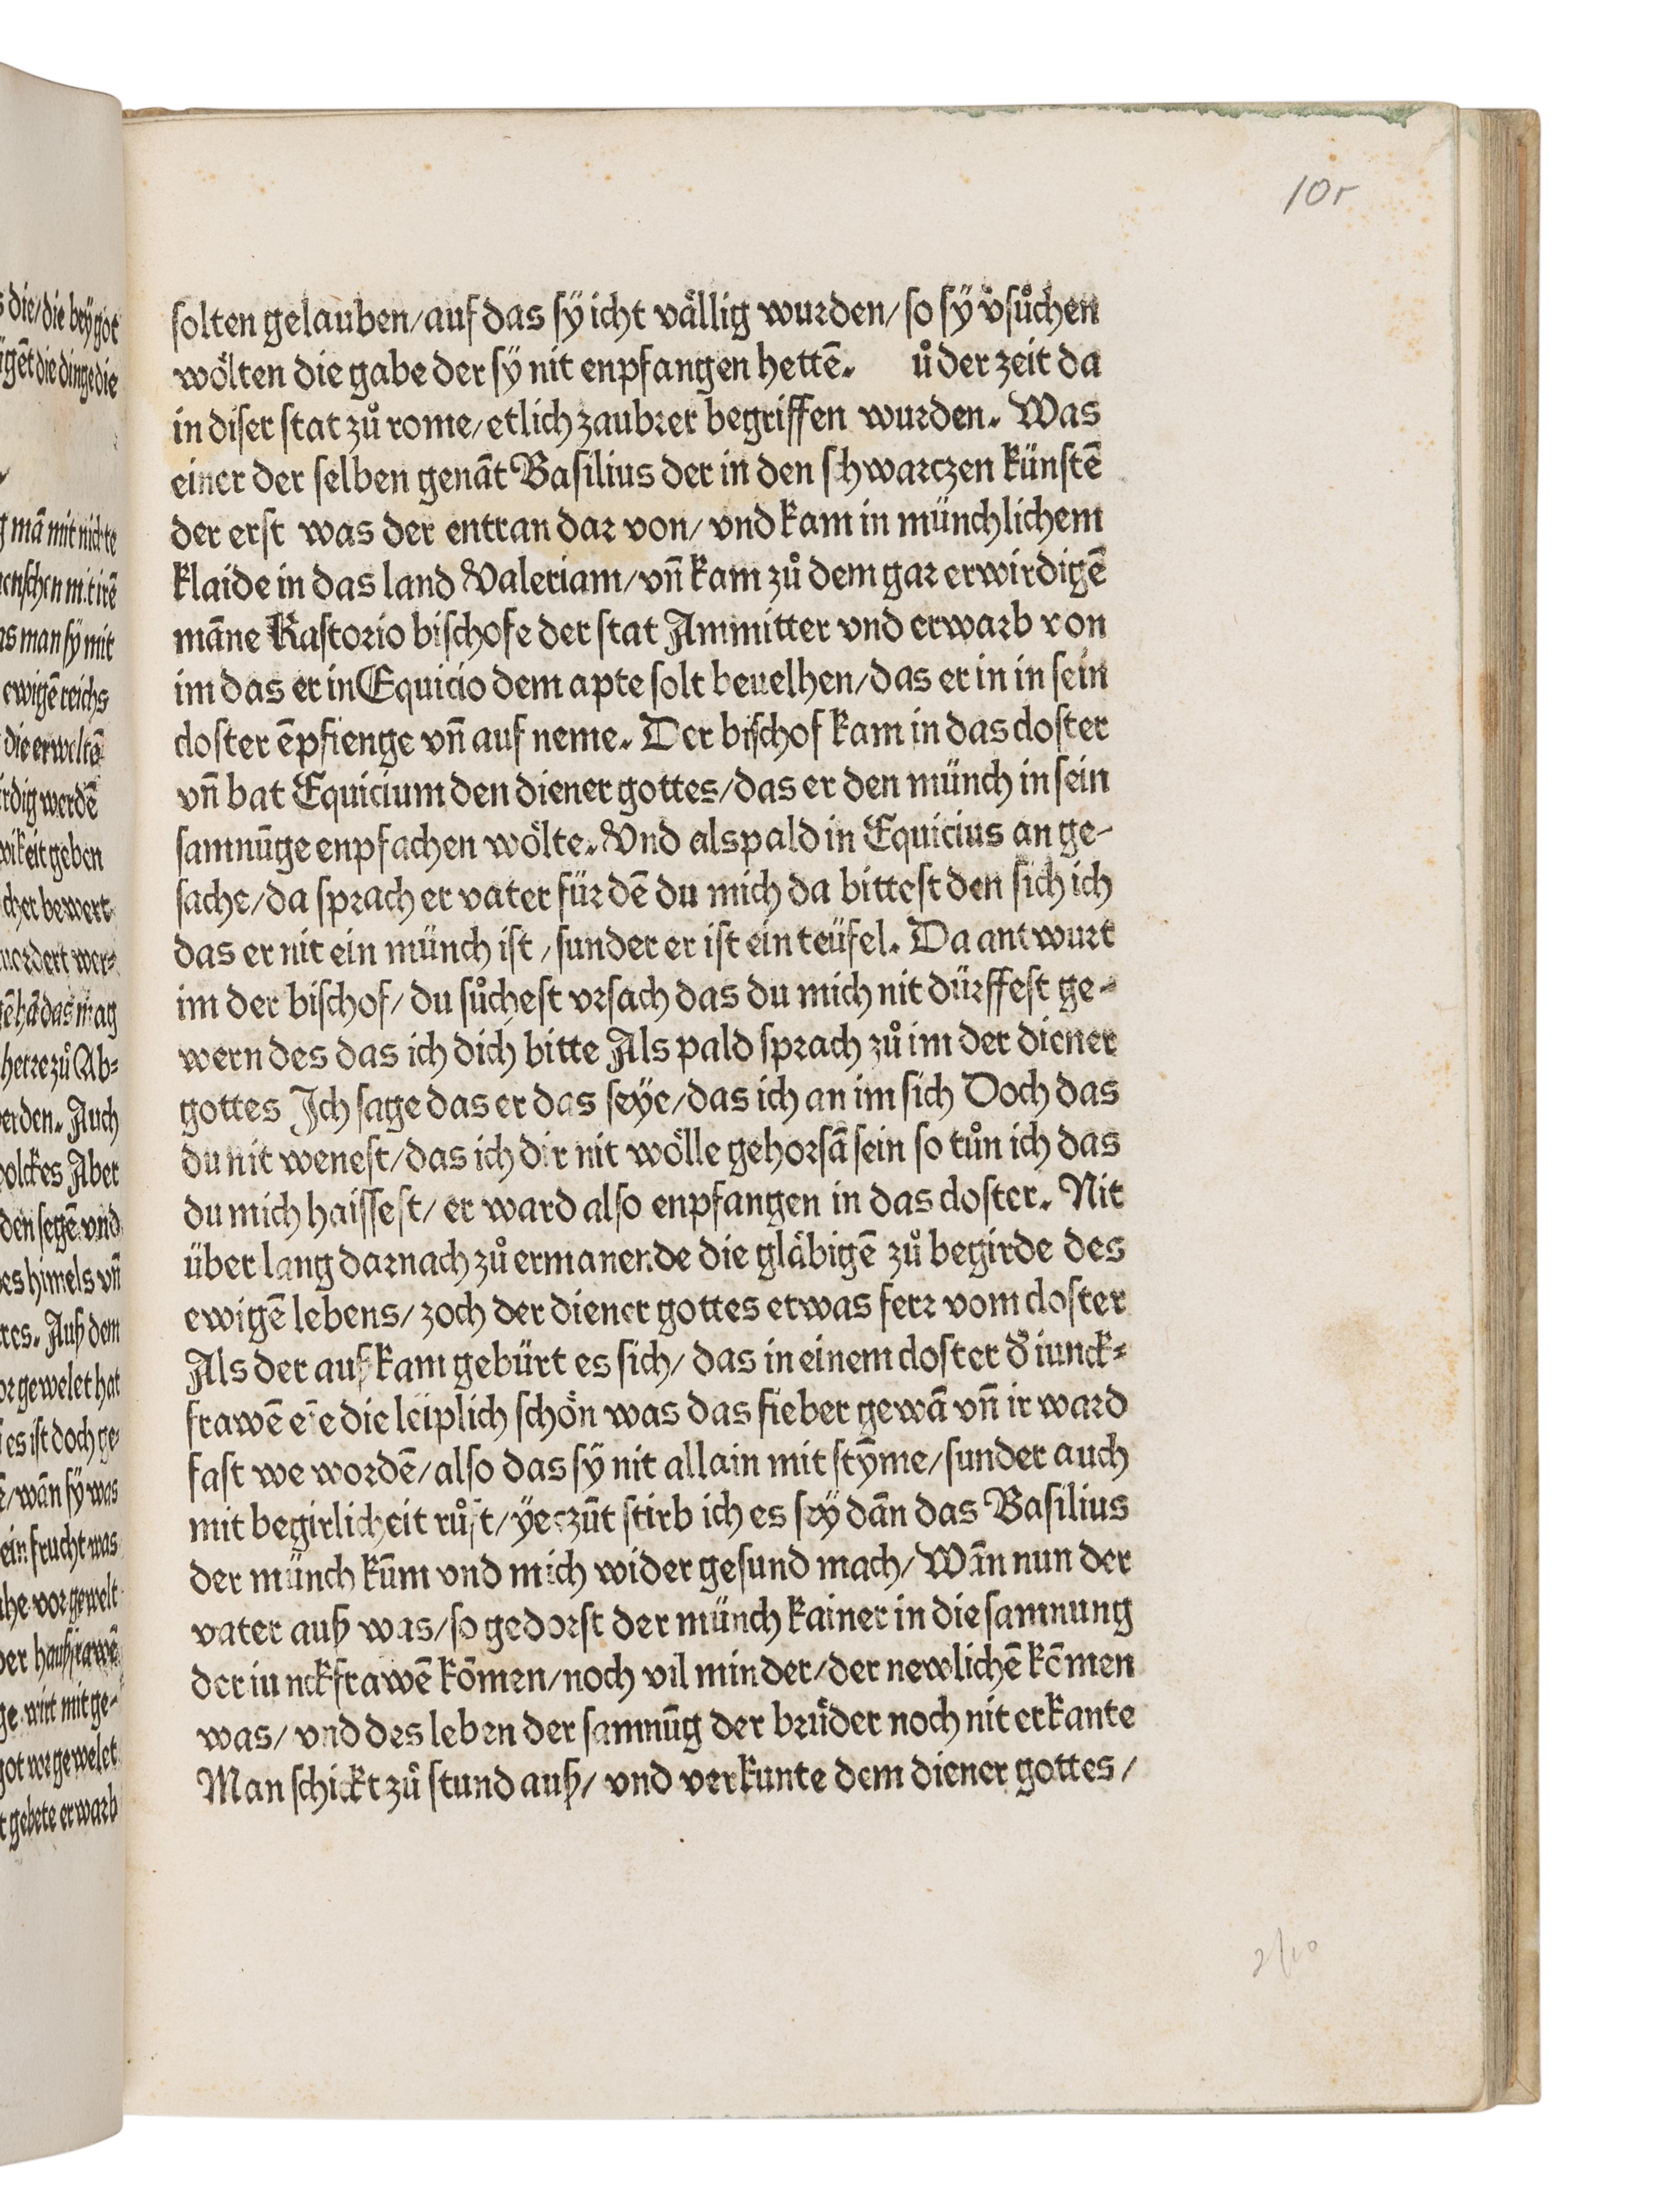 10r
solten gelauben/auf das sÿ icht våͤllig wurden/so sÿ v̊sůchen
woͤlten die gabe der sÿ nit enpfangen hettē. ů der zeit da
in diser stat zů rome/etlich zaubrer begriffen wurden. Was
einer der selben genāt Basilius der in den schwarczen künstē
der erst was der entran dar von/vnd kam in münchlichem
klaide in das land Valeriam/vn̄ kam zů dem gar erwirdigē
māne Kastorio bischofe der stat Ammitter vnd erwarb von
im das er in Equicio dem apte solt beuelhen/das er in in sein
closter ēpfienge vn̄ auf neme. Der bischof kam in das closter
vn̄ bat Equicium den diener gottes/das er den münch in sein
samnūge enpfachen woͤlte. Vnd alspald in Equicius an ge-
sache/da sprach er vater für dē du mich da bittest den sich ich
das er nit ein münch ist/sunder er ist ein teüfel. Da antwurt
im der bischof/du sůchest vrsach das du mich nit dürffest ge-
wern des das ich dich bitte Als pald sprach zů im der diener
gottes Ich sage das er das seÿe/das ich an im sich Doch das
du nit wenest/das ich dir nit woͤlle gehorsā sein so tůn ich das
du mich haissest/er ward also enpfangen in das closter. Nit
über lang darnach zů ermanende die glaͤbigē zů begirde des
ewigē lebens/zoch der diener gottes etwas ferr vom closter
Als der auß kam gebürt es sich/das in einem closter d̊ iunck-
frawē eīe die leiplich schoͤn was das fieber gewā vn̄ ir ward
fast we wordē/also das sÿ nit allain mit stȳme/sunder auch
mit begirlicheit růft/ÿeczūt stirb ich es seÿ dān das Basilius
der münch kūm vnd mich wider gesund mach/Wān nun der
vater auß was/so gedorst der münch kainer in die samnung
der iunckfrawē kōmen/noch vil minder/der newlichē kōmen
was/vnd des leben der samnūg der bruͤder noch nit erkante
Man schickt zů stund auß/vnd verkunte dem diener gottes/
2/10